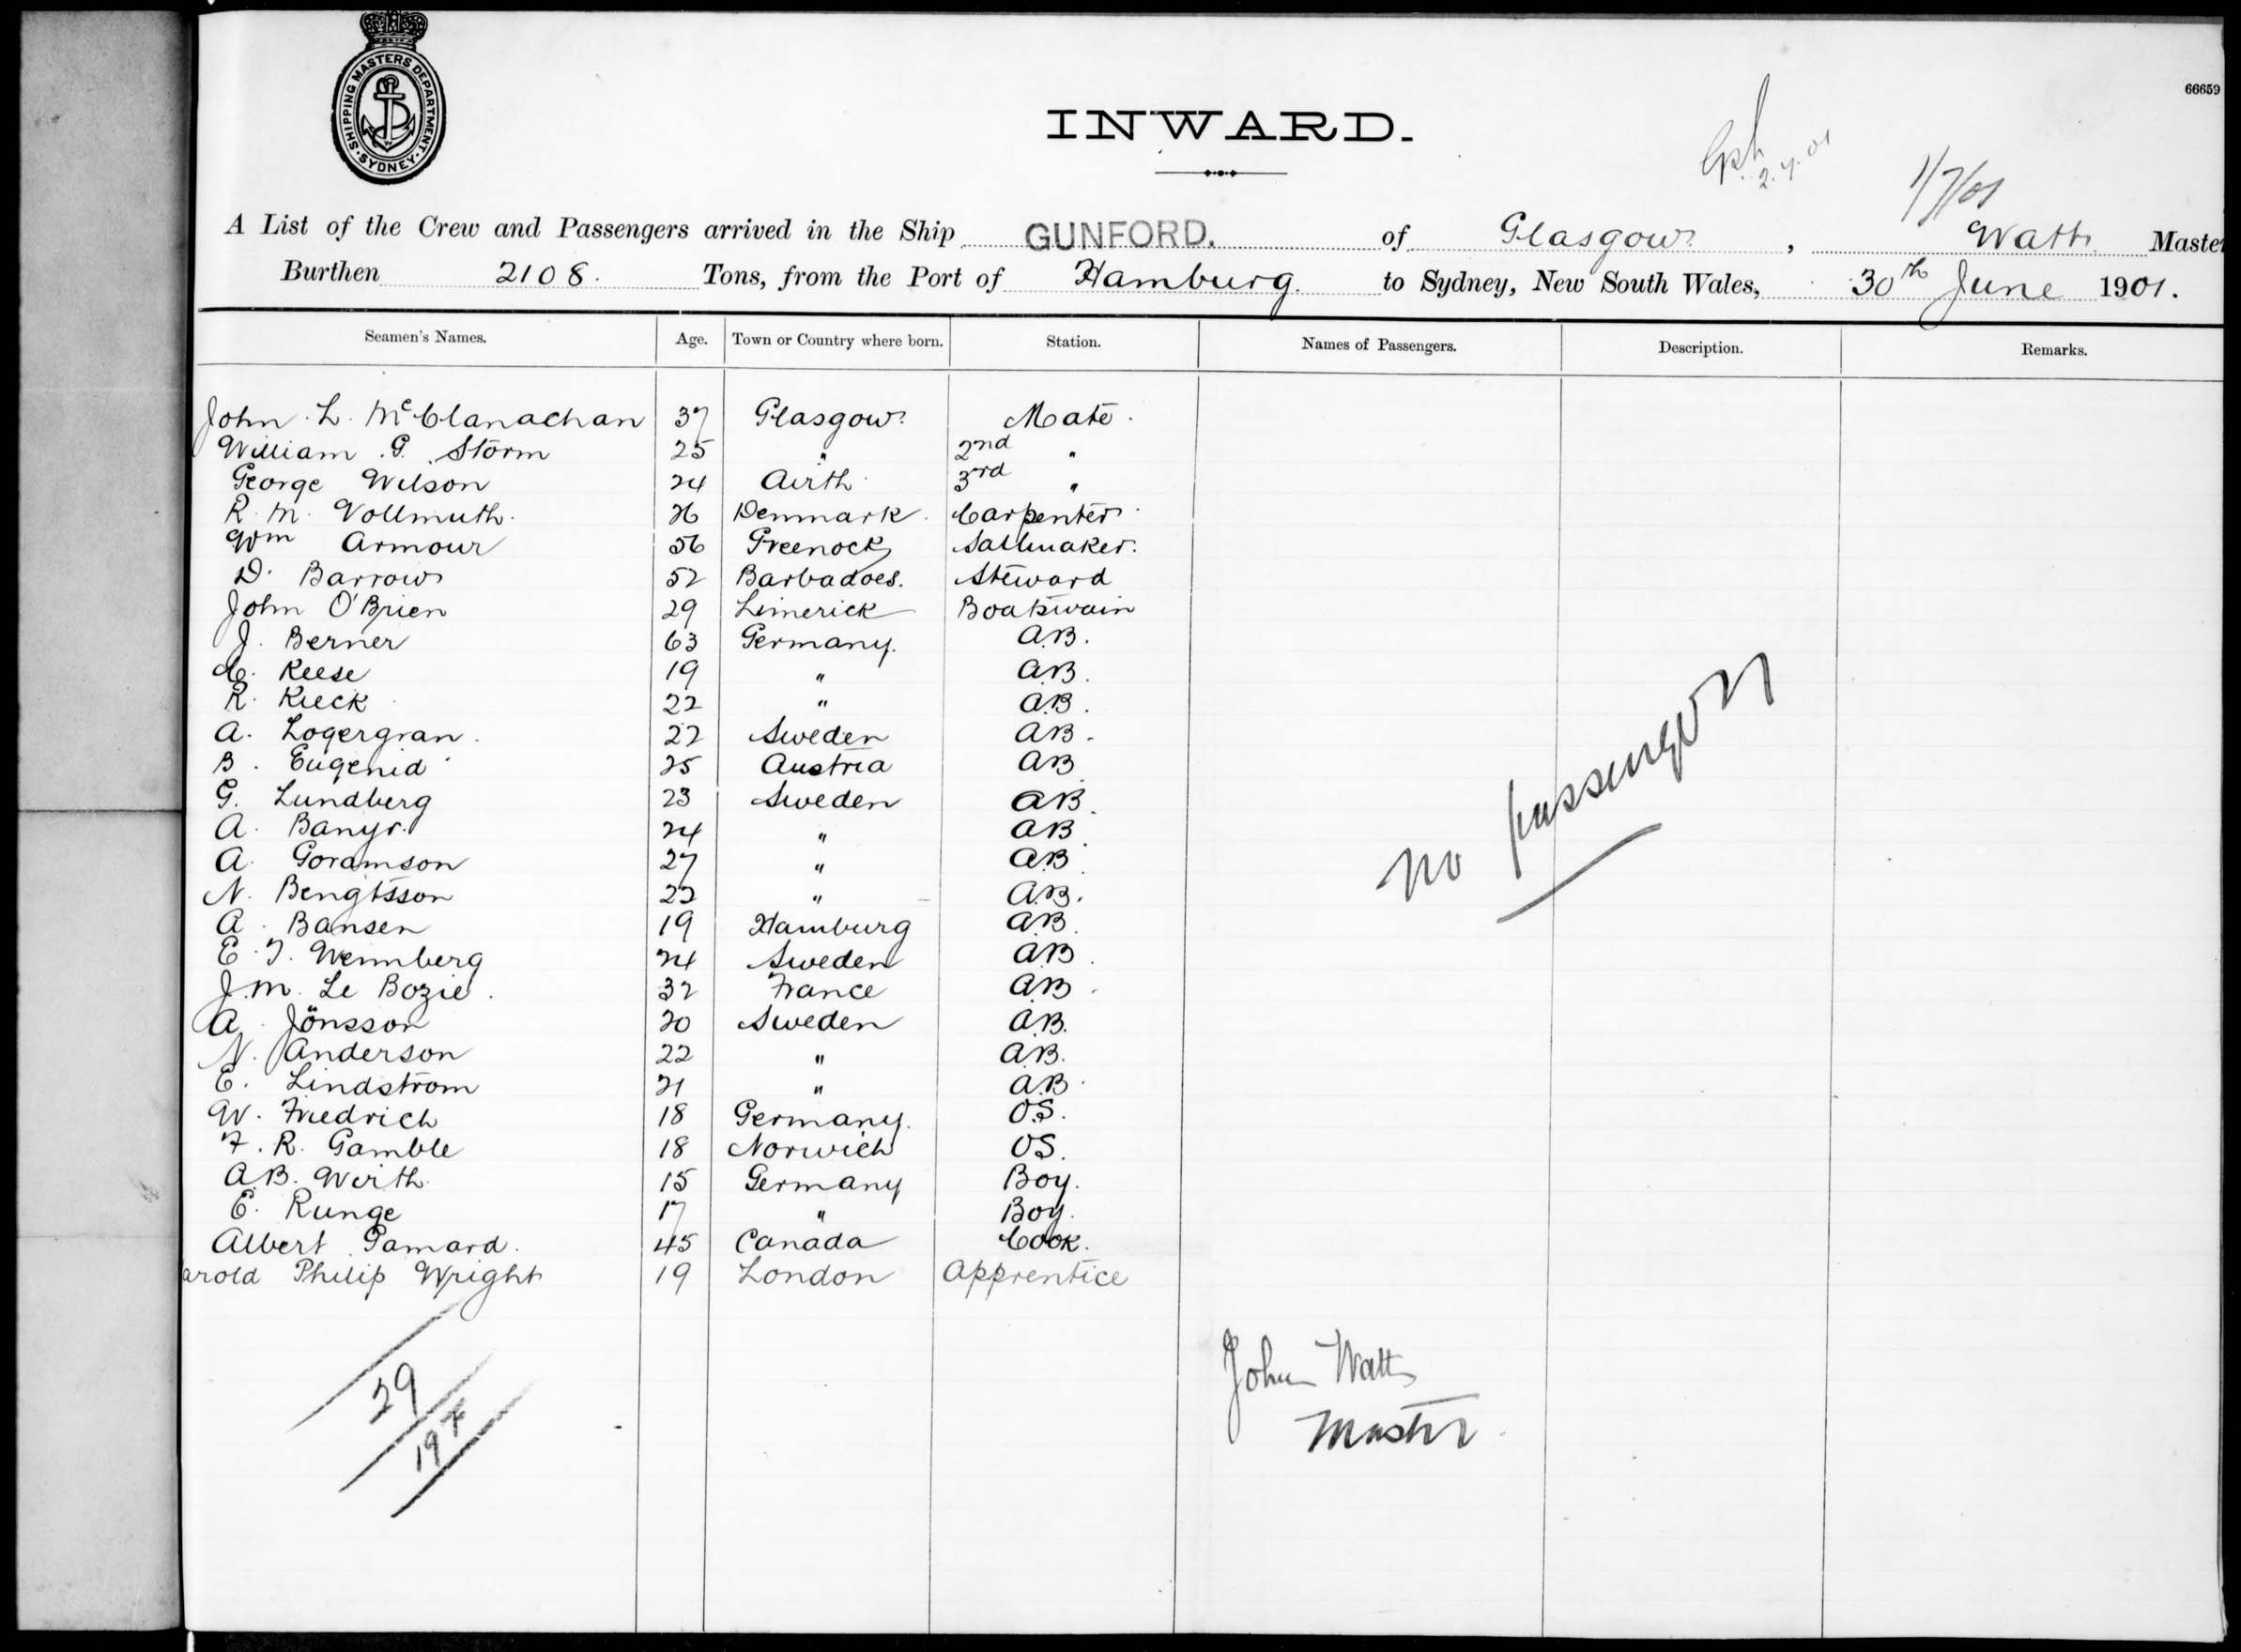 SHIPPING MASTERS DEPARTMENT. SYDNEY.
66659
INWARD.
2.7.01
1/7/01
A List of the Crew and Passengers arrived in the Ship GUNFORD. of Glasgow, Watts Master
Burthen 2108. Tons, from the Port of Hamburg. to Sydney, New South Wales, 30th June 1901.
Seamen's Names. Age. Town or Country where born. Station. Names of Passengers. Description. Remarks.
John L. McClanachan 37 Glasgow. Mate.
William G. Storm 25 " 2nd "
George Wilson 24 Airth 3rd "
R. M. Vollmuth. 26 Denmark. Carpenter.
Wm Armour 56 Greenock Sailmaker.
D. Barrow 52 Barbadoes. Steward
John O'Brien 29 Limerick Boatswain
J. Berner 63 Germany. A.B.
C. Reese 19 " A.B.
R. Kieck 22 " A.B.
A. Logergran. 22 Sweden A.B.
B. Eugenid 25 Austria A.B.
G. Lundberg 23 Sweden A.B.
A. Banyr. 24 " A.B.
A. Goramson 27 " A.B.
N. Bengtsson 22 " A.B.
A. Bansen 19 Hamburg A.B.
E. T. Wennberg 24 Sweden A.B.
J. M. Le Bozie. 32 France A.B.
A. Jönsson 20 Sweden A.B.
N. Anderson 22 " A.B.
E. Lindstrom 21 " A.B.
W. Friedrich 18 Germany. O.S.
F. R. Gamble 18 Norwich O.S.
A. B. Wirth. 15 Germany Boy.
E. Runge 17 " Boy.
Albert Gamard. 45 Canada Cook.
arold Philip Wright 19 London Apprentice
no passengers
29
19
John Watts
Master